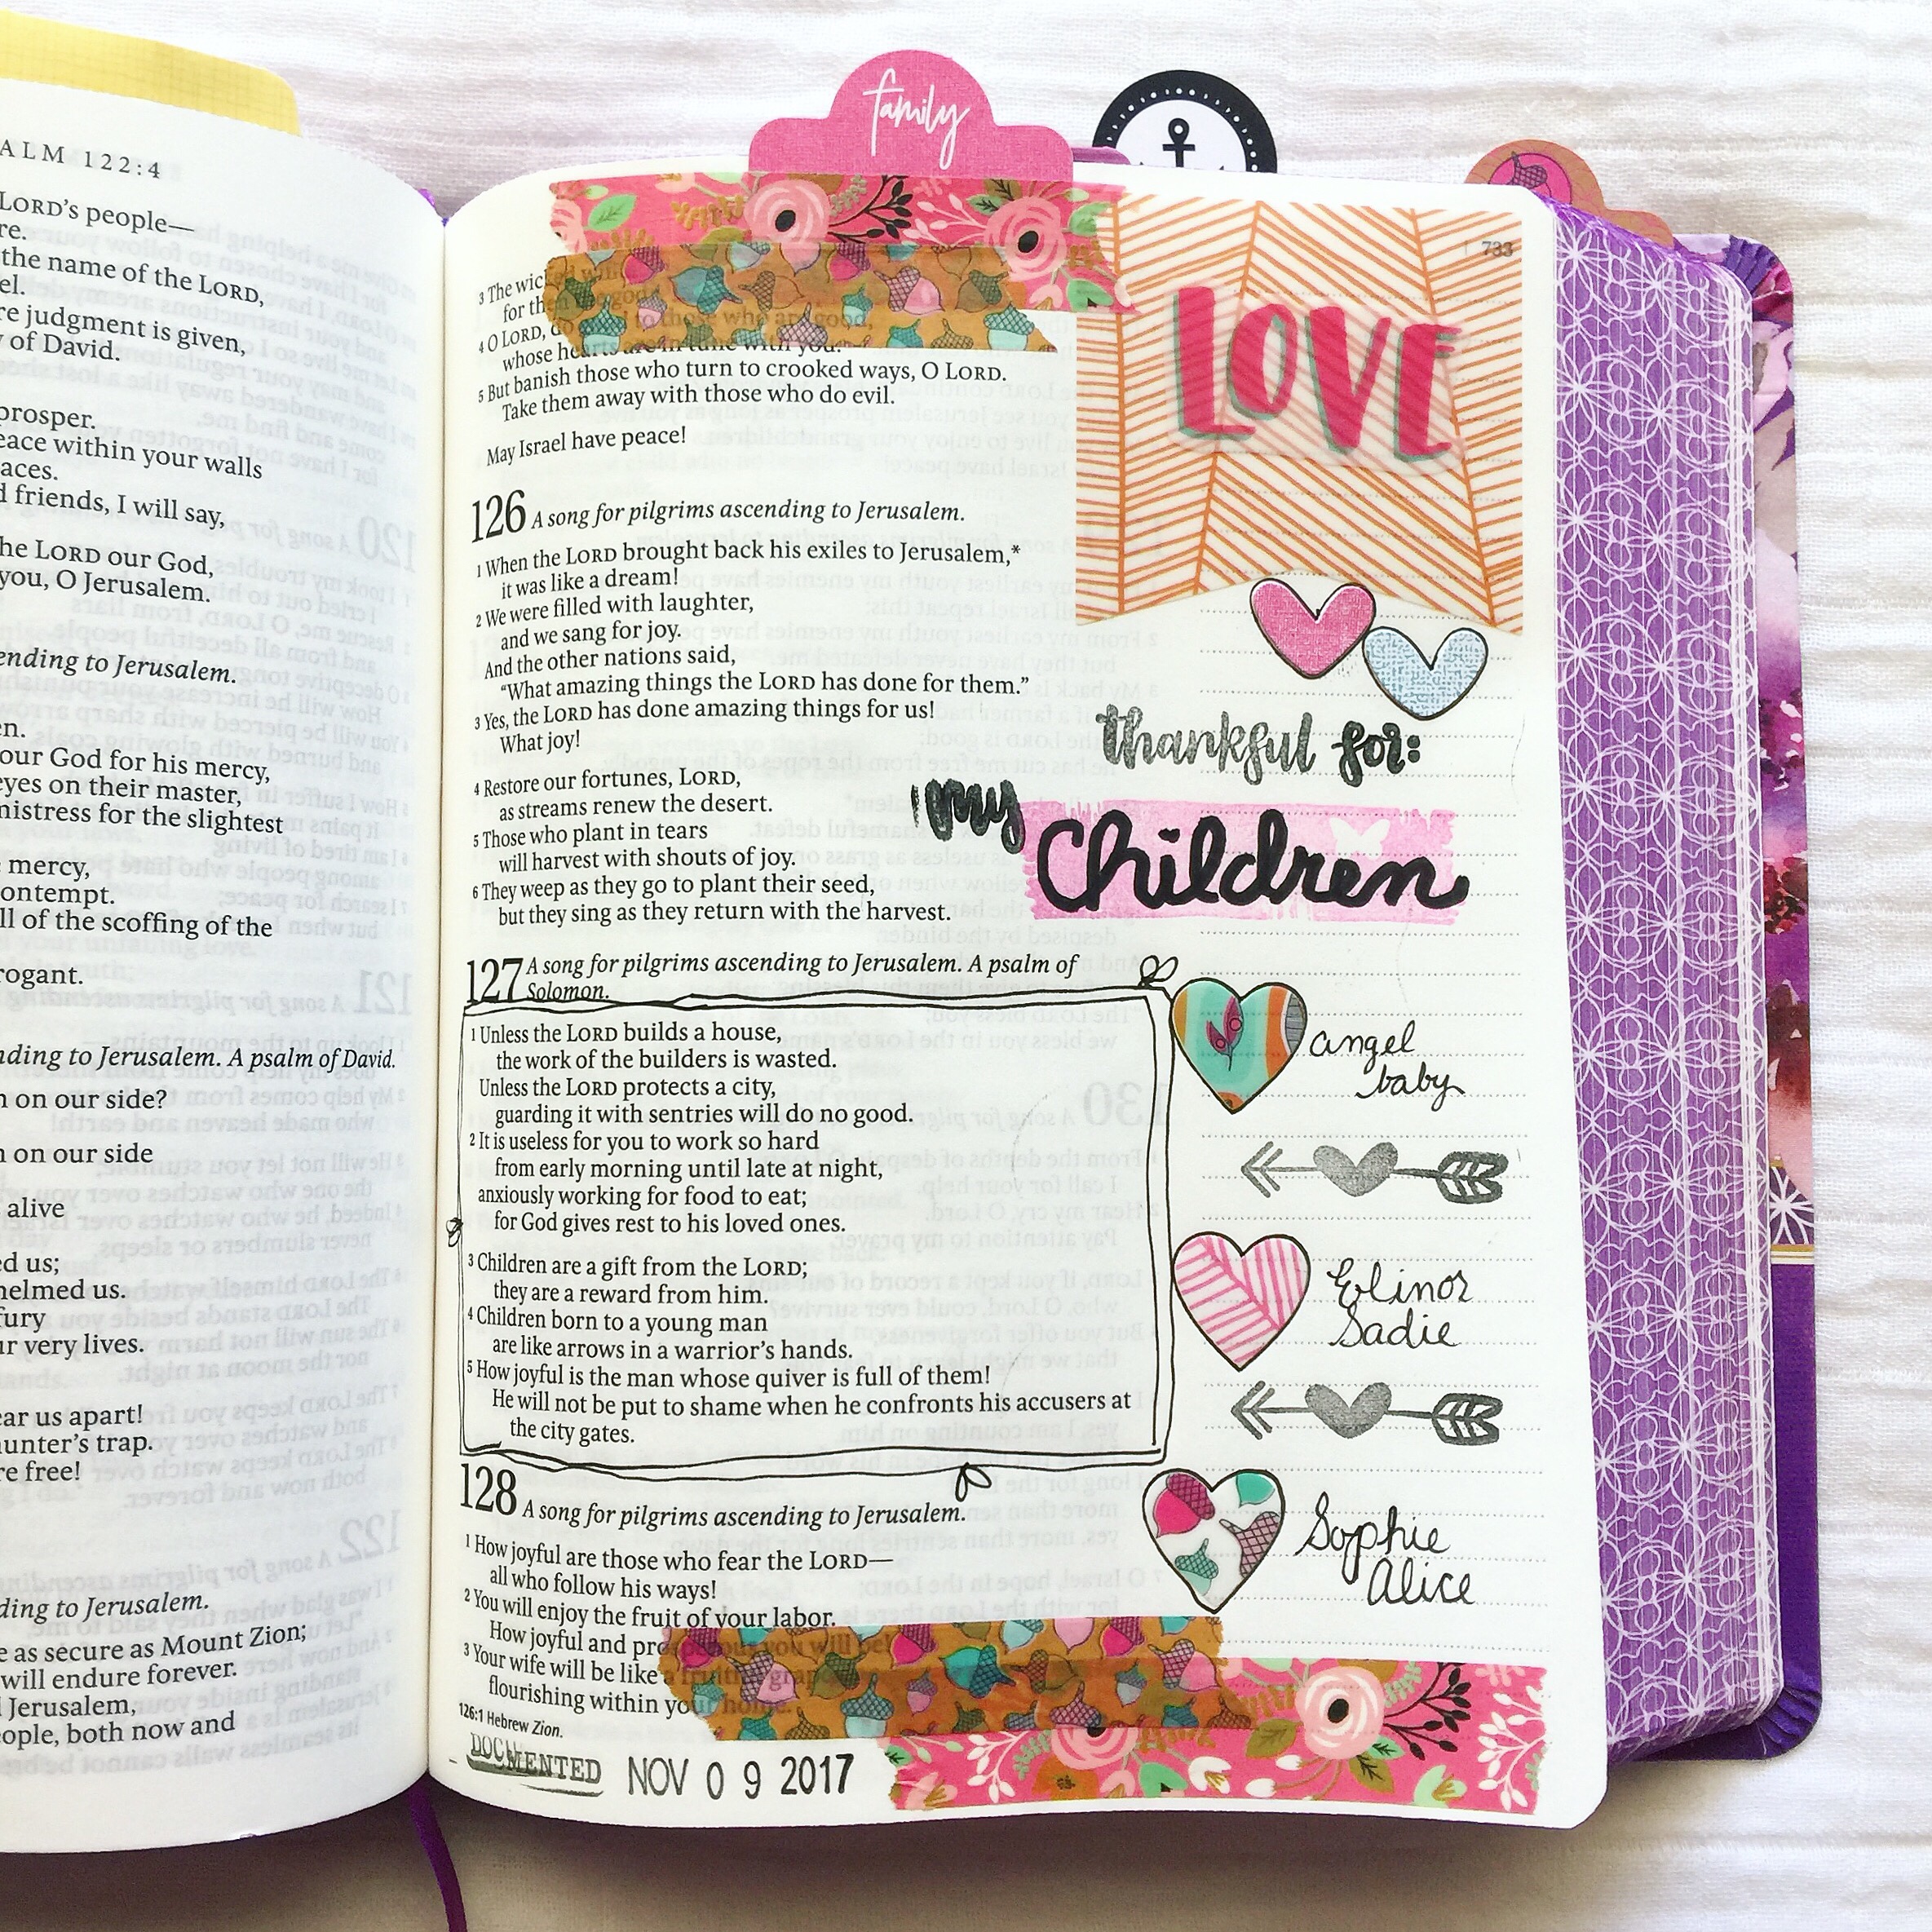 ALM 122:4
LORD's people—
re.
the name of the LORD,
el.
re judgment is given,
of David.
prosper.
eace within your walls
aces.
d friends, I will say,
he LORD our God,
you, O Jerusalem.
ending to Jerusalem.
en.
our God for his mercy,
eyes on their master,
mistress for the slightest
mercy,
ontempt.
ll of the scoffing of the
rogant.
nding to Jerusalem. A psalm of David.
n on our side?
n on our side
alive
ed us;
helmed us.
fury
ur very lives.
ear us apart!
hunter's trap.
re free!
ding to Jerusalem.
e as secure as Mount Zion;
will endure forever.
Jerusalem,
eople, both now and
family
733
3 The wicked
for th
4 O LORD, do good to those who are good,
whose hearts are in tune with you.
5 But banish those who turn to crooked ways, O LORD.
Take them away with those who do evil.
May Israel have peace!
126 A song for pilgrims ascending to Jerusalem.
1 When the LORD brought back his exiles to Jerusalem,*
it was like a dream!
2 We were filled with laughter,
and we sang for joy.
And the other nations said,
“What amazing things the LORD has done for them.”
3 Yes, the LORD has done amazing things for us!
What joy!
4 Restore our fortunes, LORD,
as streams renew the desert.
5 Those who plant in tears
will harvest with shouts of joy.
6 They weep as they go to plant their seed,
but they sing as they return with the harvest.
127 A song for pilgrims ascending to Jerusalem. A psalm of
Solomon.
1 Unless the LORD builds a house,
the work of the builders is wasted.
Unless the LORD protects a city,
guarding it with sentries will do no good.
2 It is useless for you to work so hard
from early morning until late at night,
anxiously working for food to eat;
for God gives rest to his loved ones.
3 Children are a gift from the LORD;
they are a reward from him.
4 Children born to a young man
are like arrows in a warrior's hands.
5 How joyful is the man whose quiver is full of them!
He will not be put to shame when he confronts his accusers at
the city gates.
128 A song for pilgrims ascending to Jerusalem.
1 How joyful are those who fear the LORD—
all who follow his ways!
2 You will enjoy the fruit of your labor.
How joyful and prosperous you will be!
3 Your wife will be like a fruitful grape
flourishing within your home.
126:1 Hebrew Zion.
DOCUMENTED NOV 09 2017
LOVE
thankful for:
my
Children
angel
baby
Elinor
Sadie
Sophie
Alice